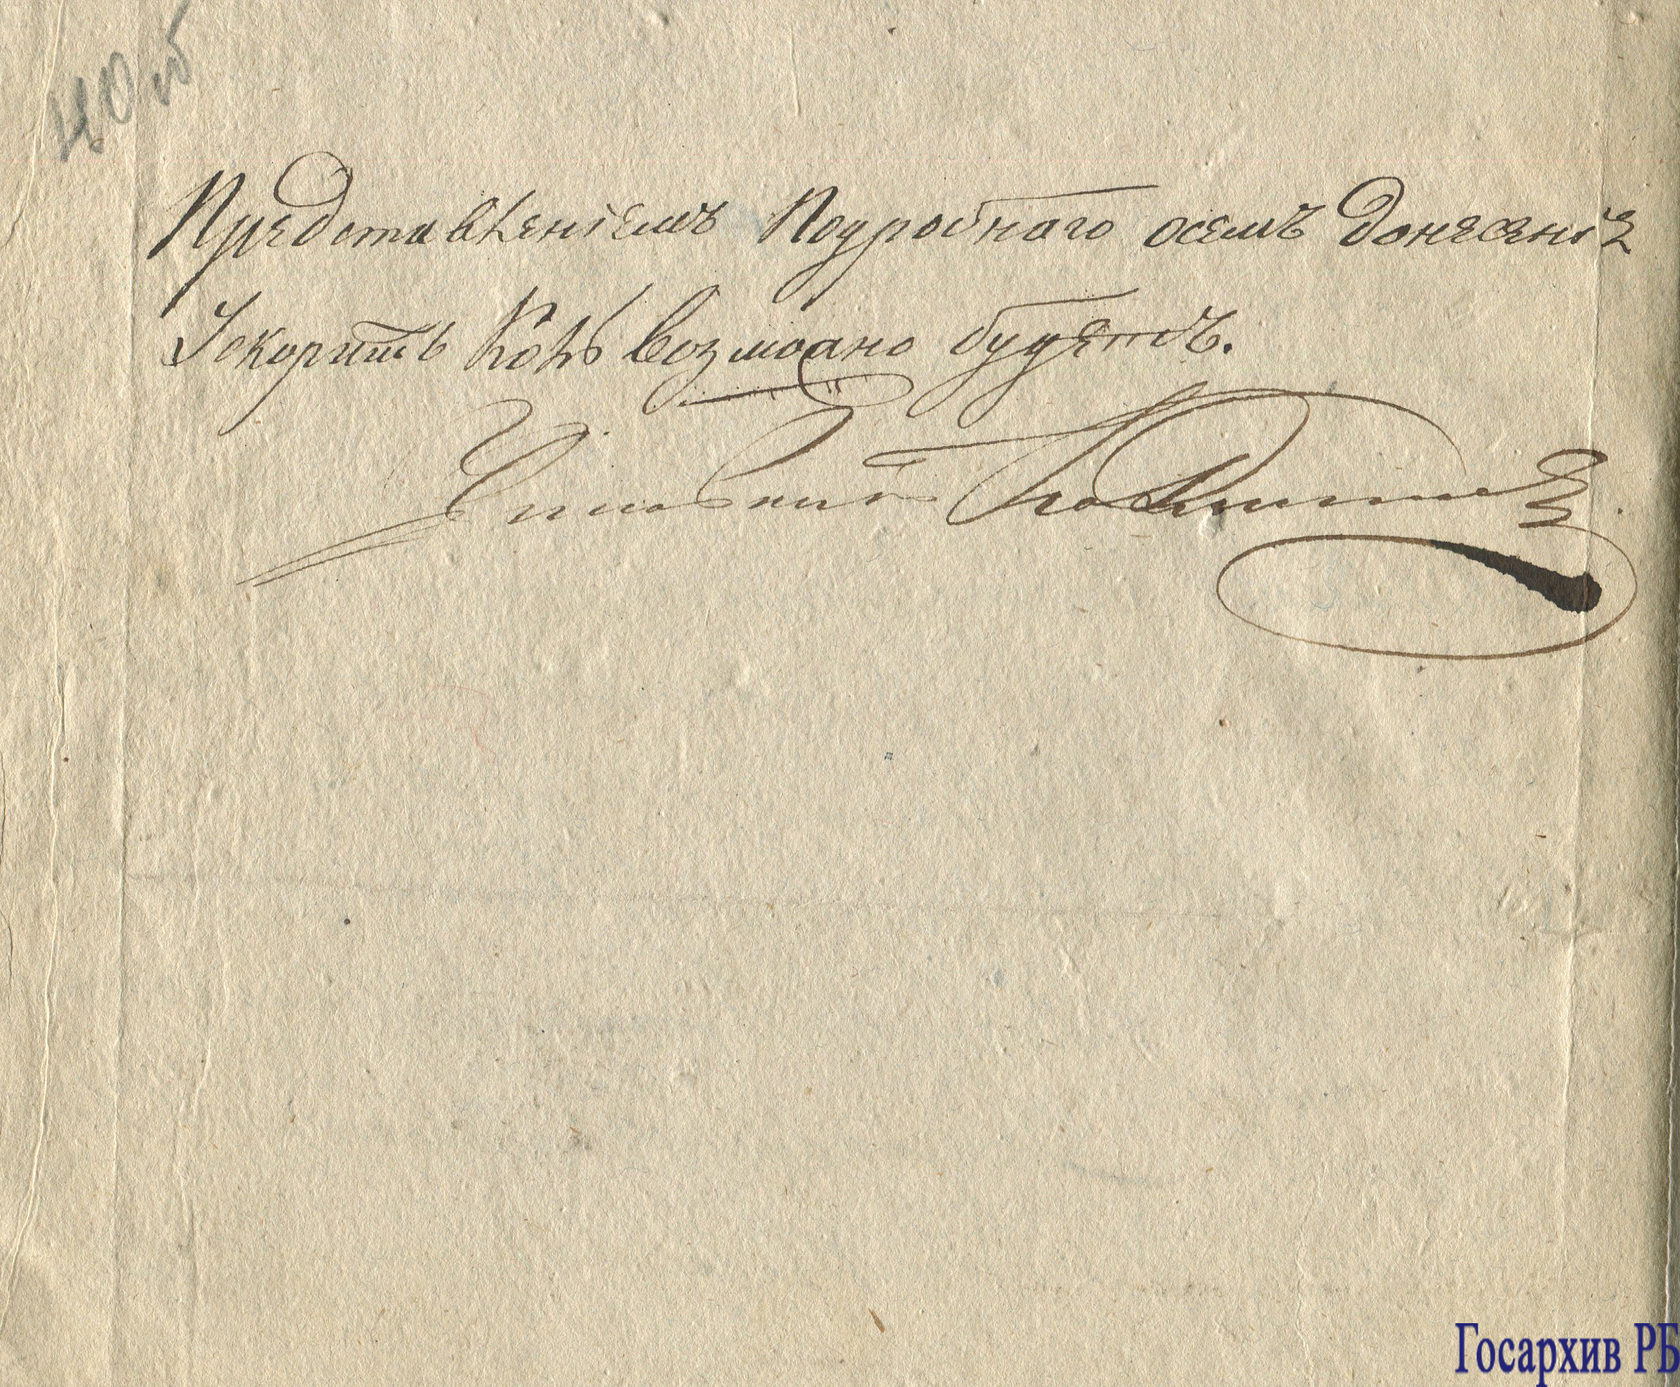 40 об
Представленіемъ Подробнаго осемъ донесенія
Ускорить Какъ возможно будетъ.
Чиновникъ
Госархив РБ